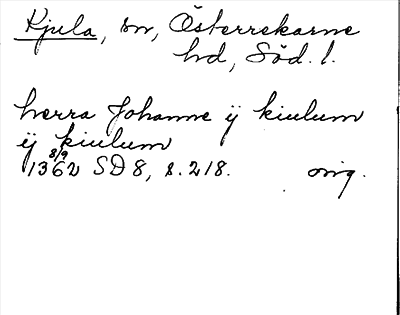 Kjula, sn, Österrekarne
hd, Söd. l.
herra Johanne ÿ kiulum
ÿ kiulum
8/9
1362 SD 8, s. 218. orig.